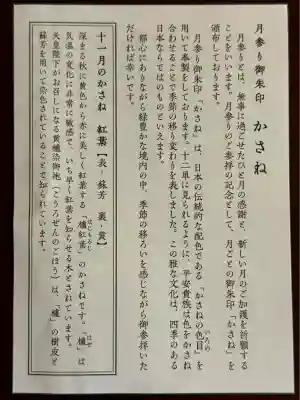 月参り御朱印 かさね
月参りとは、無事に過ごせたひと月の感謝と、新しい月のご加護を祈願する
ことをいいます。月参りのご参拝の記念として、月ごとの御朱印「かさね」を
頒布しております。
月参り御朱印「かさね」は、日本の伝統的な配色である「かさねの色目」を
いろめ
用いて奉製をしております。十二単に見られるように、平安貴族は色をかさね
合わせることで季節の移り変わりを表しました。この雅な文化は、四季のある
日本ならではのものといえます。
都心にありながら緑豊かな境内の中、季節の移ろいを感じながら御参拝いた
だければ幸いです。
十一月のかさね 紅葉【表・蘇芳 裏・黄】
深まる秋に黄色から赤に美しく紅葉する「櫨紅葉」のかさねです。「櫨」は
はじもみじ
はぜ
気温の変化に非常に敏感で、いち早く紅葉を知らせる木とされています。
天皇陛下がお召しになる黄櫨染御袍（こうろぜんのごほう）は、「櫨」の樹皮と
蘇芳を用いて染色されていることで知られています。